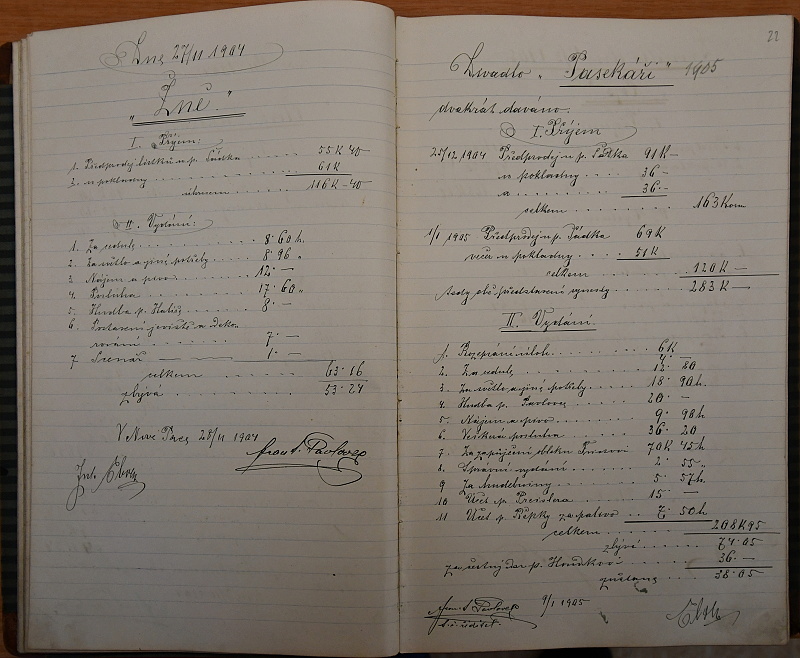 Dne 27/11 1904
"Žně."
I. Příjem:
1. Předprodej lístků u p. Sádka 55 K 40
2. u pokladny 61 K
úhrnem 116 K - 40
II. Vydání:
1. Za 8·60 h.
2. Za světlo a jiné potřeby 8·96 "
3. Nájem a pivo 12·—
4. Posluha 17·60 "
5. Hudba p. 8·—
6. Postavení jeviště a deko-
rování 7·—
7 Scenář 1·—
celkem 63·16
zbývá 53·24
V Nové Pace 28/11 1904
Frant. Pavlovec
Ant.
22
Divadlo "Pasekáři" 1905
dvakrát dáváno.
I. Příjem
25/12 1904 Předprodej u p. Sádka 91 K —
u pokladny 36 —
a 36·—
celkem 163 K
1/1 1905 Předprodej u p. Sádka 69 K
večer u pokladny 51 K
celkem 120 K —
tedy obě představení vynesly 283 K —
II. Vydání.
1. Rozepsání úloh 6 K
2. Za 12 20
3. Za světlo a jiné potřeby 18· 90 h.
4. Hudba p. Pavlovec 20 —
5. Nájem a pivo 9· 98 h
6. posluha 36· 20
7. Za zapůjčení obleků 70 K 45 h
8. Správní vydání 2· 55 "
9 Za hudebniny 5· 57 h.
10 Účet p. Preislera 15 —
11 Účet p. Řepky za palivo 7· 50 h.
celkem 208 K 95
zbývá 74·05
za čestný dar p. 36·—
zůstane 38·05
Frant. Pavlovec 9/1 1905